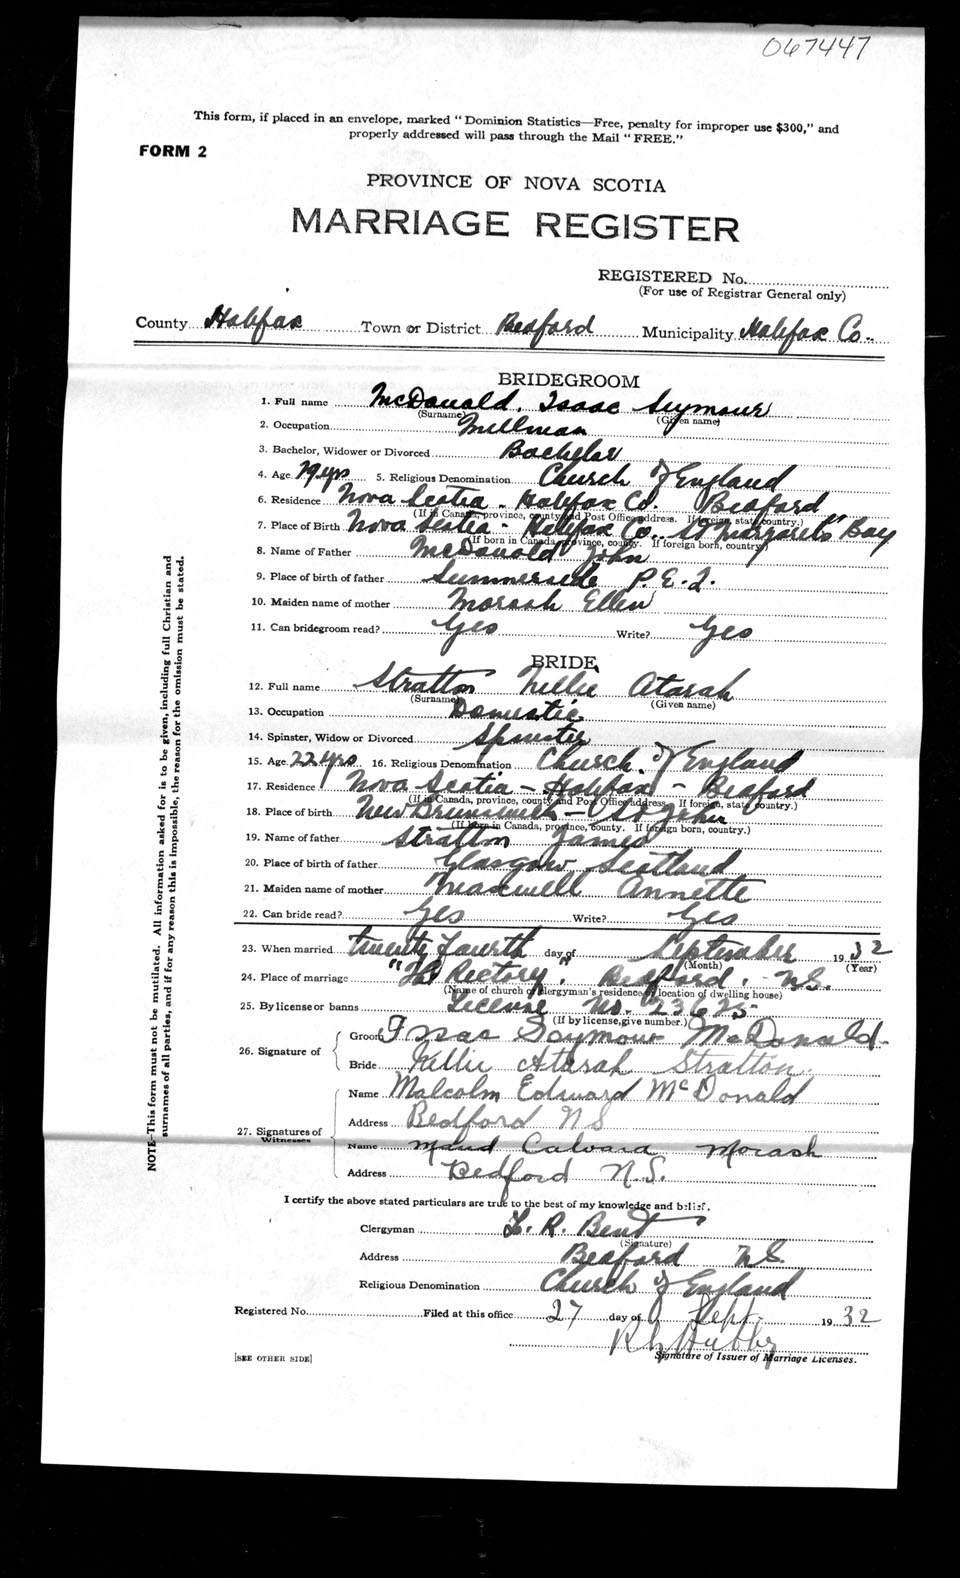 067447
This form, if placed in an envelope, marked "Dominion Statistics—Free, penalty for improper use $300," and
properly addressed will pass through the Mail "FREE."
FORM 2
PROVINCE OF NOVA SCOTIA
MARRIAGE REGISTER
REGISTERED No.
(For use of Registrar General only)
County Halifax Town or District Bedford Municipality Halifax Co.
BRIDEGROOM
1. Full name McDonald, Isaac Seymour
(Surname) (Given name)
2. Occupation Millman
3. Bachelor, Widower or Divorced Bachelor
4. Age 19 yrs 5. Religious Denomination Church of England
6. Residence Nova Scotia - Halifax Co. Bedford
(If in Canada, province, county and Post Office address. If foreign, state country.)
7. Place of Birth Nova Scotia - Halifax Co. St Margaret's Bay
(If born in Canada, province, county. If foreign born, country)
8. Name of Father McDonald John
9. Place of birth of father Summerside P.E.I.
10. Maiden name of mother Morash Ellen
11. Can bridegroom read? Yes Write? Yes
BRIDE
12. Full name Stratton Nellie Atarah
(Surname) (Given name)
13. Occupation Domestic
14. Spinster, Widow or Divorced Spinster
15. Age 22 yrs 16. Religious Denomination Church of England
17. Residence Nova Scotia - Halifax - Bedford
(If in Canada, province, county and Post Office address. If foreign, state country.)
18. Place of birth New Brunswick - St John
(If born in Canada, province, county. If foreign born, country.)
19. Name of father Stratton James
20. Place of birth of father Glasgow Scotland
21. Maiden name of mother Maxwell Annette
22. Can bride read? Yes Write? Yes
23. When married twenty fourth day of September 1932
(Month) (Year)
24. Place of marriage "The Rectory," Bedford, N.S.
(Name of church or clergyman's residence or location of dwelling house)
25. By license or banns License No. 23625
(If by license, give number.)
26. Signature of
Groom Isaac Seymour McDonald
Bride Nellie Atarah Stratton
27. Signatures of Witnesses
Name Malcolm Edward McDonald
Address Bedford NS
Name Maud Morash
Address Bedford N.S.
I certify the above stated particulars are true to the best of my knowledge and belief.
Clergyman R. Bent
(Signature)
Address Bedford N.S.
Religious Denomination Church of England
Registered No. Filed at this office 27 day of Sept. 1932
Signature of Issuer of Marriage Licenses.
[SEE OTHER SIDE]
NOTE—This form must not be mutilated. All information asked for is to be given, including full Christian and
surnames of all parties, and if for any reason this is impossible, the reason for the omission must be stated.